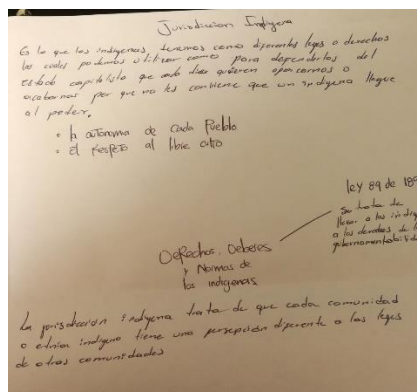 Jurisdiccion Indigena
Es lo que los indigenas, tenemos como diferentes leyes o derechos
los cuales podemos utilizar como para defenderlos del
estado capitalista que cada dia quieren opacarnos o
acabarnos por que no les conviene que un indigena llegue
al poder.
• la autonomia de cada Pueblo
• El respeto al libre culto
ley 89 de 189
se trata de
llevar a los indig
a los derechos de la
gubernamentabilida
Derechos, Deberes
y Normas de
los indigenas
La jurisdiccion indigena trata de que cada comunidad
o etnia indigena tiene una persepción diferente a las leyes
de otras comunidades